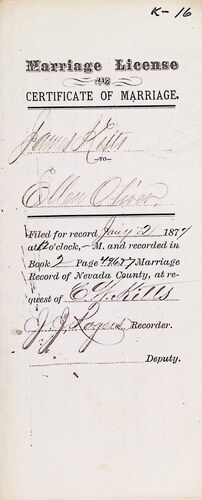 K - 16
Marriage License
AND
CERTIFICATE OF MARRIAGE.
James Kitts
-TO-
Ellen Oliver
Filed for record Jany 2 1877
at 12 o'clock, - M. and recorded in
Book 2 Page 496 & 7 Marriage
Record of Nevada County, at re-
quest of E. Y. Kitts
J. J. Rogers Recorder.
Deputy.